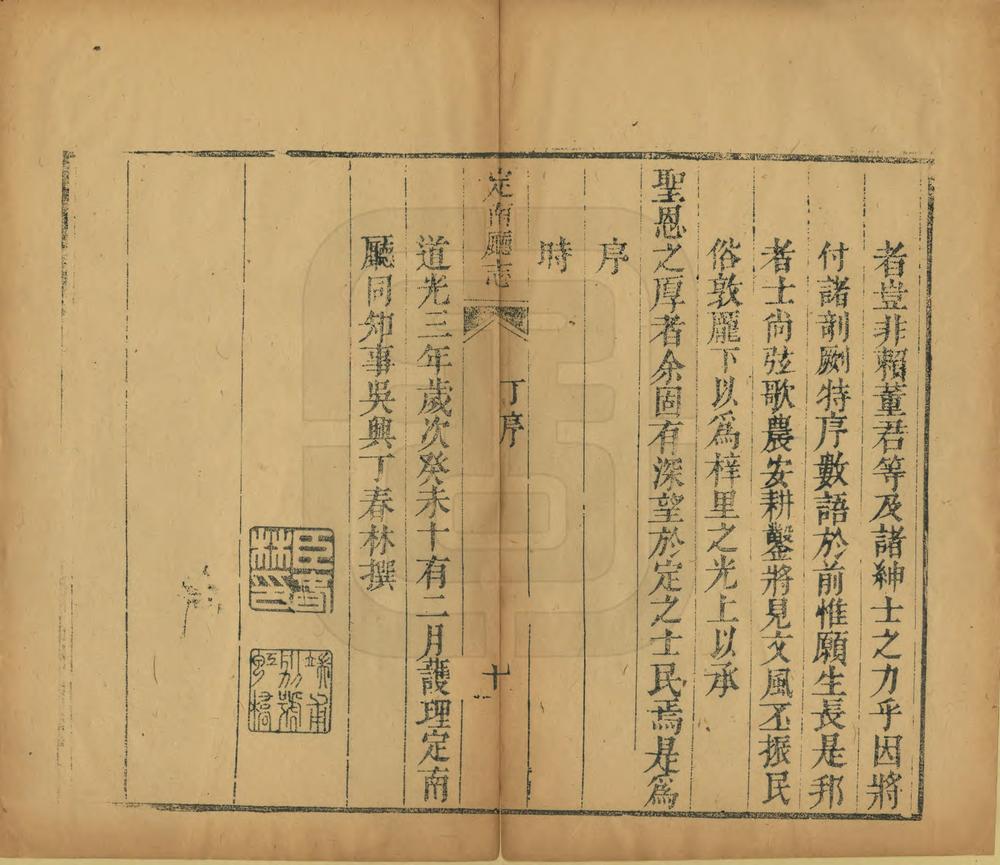 者豈非賴董君等及諸紳士之力乎因將
付諸剞劂特序數語於前惟願生長是邦
者士尚弦歌農安耕鑿將見文風丕振民
俗敦龐下以爲梓里之光上以承
聖恩之厚者余固有深望於定之士民焉是爲
序
時
定南廳志
丁序
十
道光三年歲次癸未十有二月護理定南
廳同知事吳興丁春林撰
臣春林印
別號